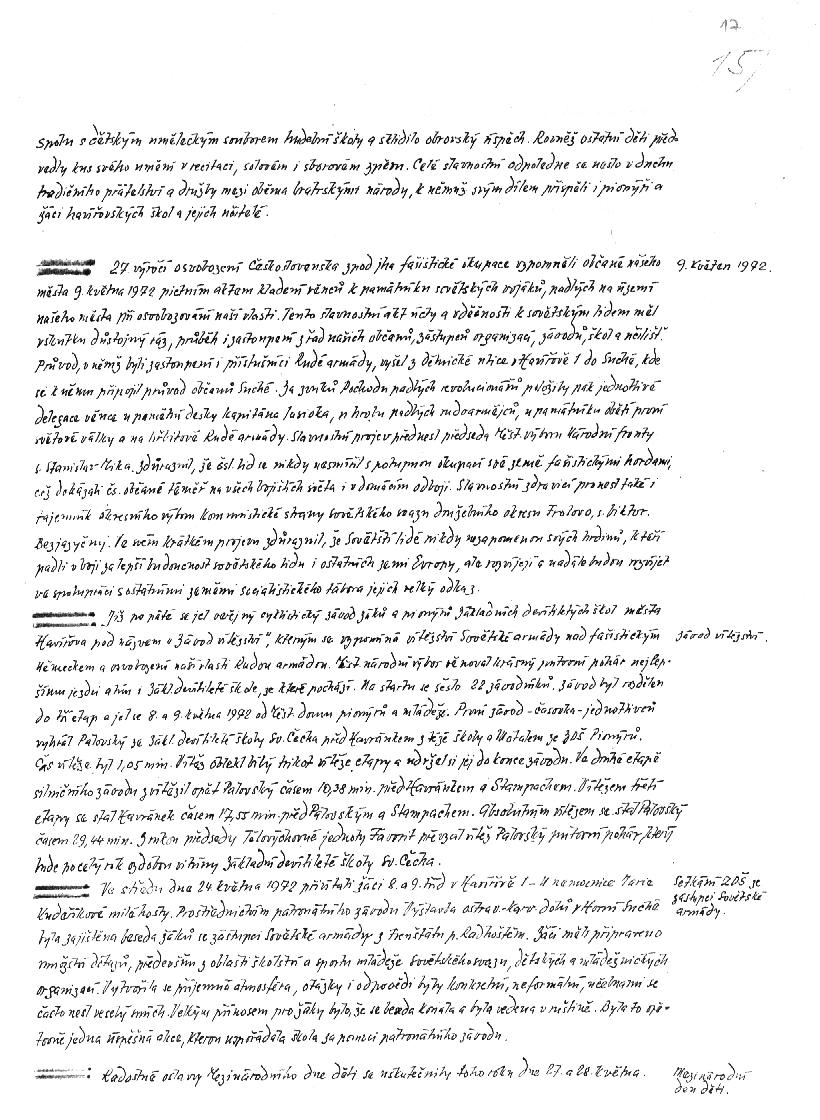 17
15/
spolu s dětským uměleckým souborem hudební školy a sklidilo obrovský úspěch. Rovněž ostatní děti před-
vedly kus svého umění v recitaci, sólovém i sborovém zpěvu. Celé slavnostní odpoledne se neslo v duchu
tradičního přátelství a družby mezi oběma bratrskými národy, k němuž svým dílem přispěli i pionýři a
žáci havířovských škol a jejich učitelé.
27. výročí osvobození Československa zpod jha fašistické okupace vzpomněli občané našeho
9. květen 1972.
města 9. května 1972 pietním aktem kladení věnců k památníku sovětských vojáků, padlých na území
našeho města při osvobozování naší vlasti. Tento slavnostní akt úcty a vděčnosti k sovětským lidem měl
vskutku důstojný ráz, průběh i zastoupení z řad našich občanů, zástupců organizací, závodů, škol a učilišť.
Průvod, v němž byli zastoupeni i příslušníci Rudé armády, vyšel z Dělnické ulice v Havířově 1 do Suché, kde
se k němu připojil průvod občanů Suché. Za zvuků Pochodu padlých revolucionářů položily pak jednotlivé
delegace věnce u pamětní desky kapitána, u hrobu padlých rudoarmějců, u památníku obětí první
světové války a na hřbitově Rudé armády. Slavnostní projev přednesl předseda Měst. výboru Národní fronty
s. Stanislav Mika. Zdůraznil, že čsl. lid se nikdy nesmířil s potupnou okupací své země fašistickými hordami,
což dokázali čs. občané téměř na všech bojištích světa i v domácím odboji. Slavnostní zdravici pronesl také i
tajemník okresního výboru komunistické strany Sovětského svazu družebního okresu Frolovo, s. Viktor.
Bezjazyčnyj. Ve svém krátkém projevu zdůraznil, že Sovětští lidé nikdy nezapomenou svých hrdinů, kteří
padli v boji za lepší budoucnost sovětského lidu i ostatních zemí Evropy, ale rozvíjejí a nadále budou rozvíjet
ve spolupráci s ostatními zeměmi socialistického tábora jejich velký odkaz.
Již po páté se jel veřejný cyklistický závod žáků a pionýrů Základních devítiletých škol města
Havířova pod názvem "Závod vítězství", kterým se vzpomíná vítězství Sovětské armády nad fašistickým
Závod vítězství.
Německem a osvobození naší vlasti Rudou armádou. Měst. národní výbor věnoval krásný putovní pohár nejlep-
šímu jezdci a tím i Zákl. devítileté škole, ze které pochází. Na startu se sešlo 22 závodníků. Závod byl rozdělen
do tří etap a jel se 8. a 9. května 1972 od Měst. domu pionýrů a mládeže. První závod - časovka - jednotlivců
vyhrál Palovský ze Zákl. devítileté školy Sv. Čecha před Havránkem z téže školy a Watalem ze ZDŠ Pionýrů.
Čas vítěze byl 1,05 min. Vítěz oblékl bílý trikot vítěze etapy a udržel si jej do konce závodu. Ve druhé etapě
silničního závodu zvítězil opět Palovský časem 10,38 min. před Havránkem a Stampachem. Vítězem třetí
etapy se stal Havránek časem 17,55 min. před Palovským a Stampachem. Absolutním vítězem se stal Palovský
časem 29,44 min. Z rukou předsedy Tělovýchovné jednoty Favorit převzal vítěz Palovský putovní pohár, který
bude po celý rok ozdobou vitríny Základní devítileté školy Sv. Čecha.
Ve středu dne 24. května 1972 přivítali žáci 8. a 9. tříd v Havířově 1 - U nemocnice Marie
Setkání ZDŠ se
Kudeříkové milé hosty. Prostřednictvím patronátního závodu Výstavba ostrav.-karv. dolů v Horní Suché
zástupci Sovětské
byla zajištěna beseda žáků se zástupci Sovětské armády z Frenštátu p. Radhoštěm. Žáci měli připraveno
armády.
množství dotazů, především z oblasti školství a sportu mládeže Sovětského svazu, dětských a mládežnických
organizací. Vytvořila se příjemná atmosféra, otázky i odpovědi byly konkrétní, neformální, učebnami se
často nesl veselý smích. Velkým přínosem pro žáky bylo, že se beseda konala a byla vedena v ruštině. Byla to opě-
tovně jedna úspěšná akce, kterou uspořádala škola za pomoci patronátního závodu.
Radostné oslavy Mezinárodního dne dětí se uskutečnily toho roku dne 27. a 28. května.
Mezinárodní
den dětí.